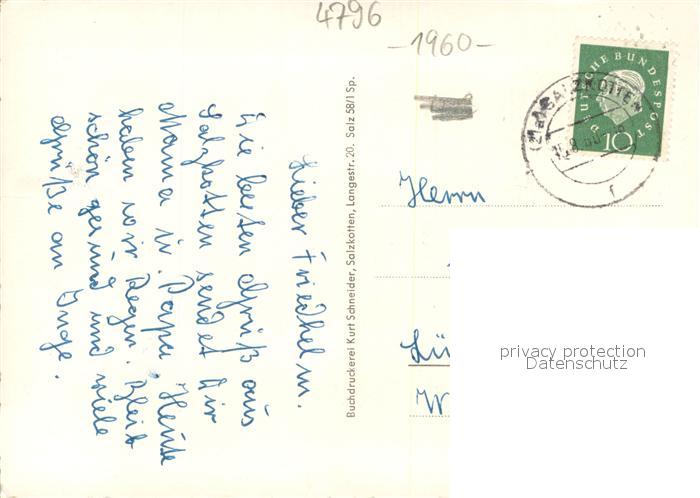 4796
-1960-
DEUTSCHE BUNDESPOST
10
(21a) SALZKOTTEN
Herrn
Lü
W
privacy protection
Datenschutz
Buchdruckerei Kurt Schneider, Salzkotten, Langestr. 20. Salz 58/1 Sp.
Lieber Friedhelm.
Die besten Grüß aus
Salzkotten sendet Dir
Mama u. Papa. Heute
haben wir Regen. Bleib
schön gesund und viele
Grüße an Inge.